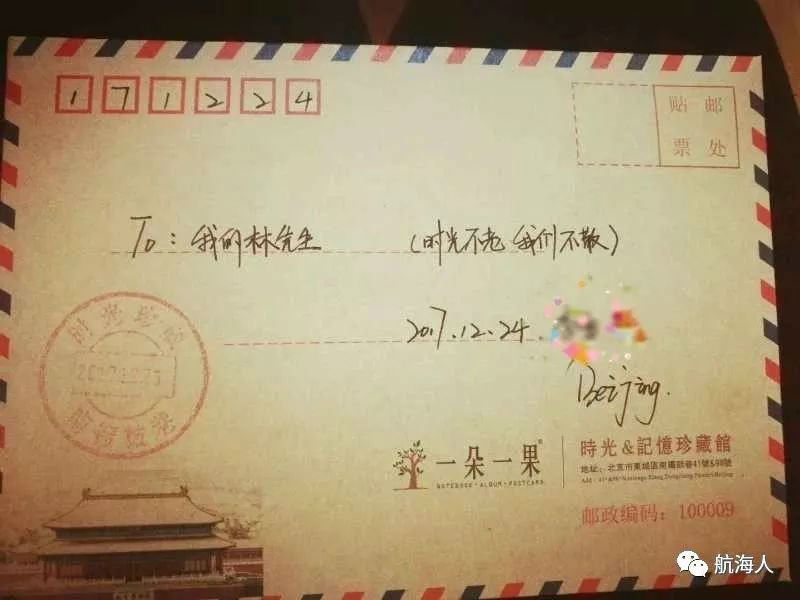 1 7 1 2 2 4
贴 邮
票 处
To: 我的林先生 (时光不老 我们不散)
2017.12.24
Beijing.
时光珍藏
一朵一果
NOTEBOOK · ALBUM · POSTCARD
時光&記憶珍藏館
地址: 北京市東城區南鑼鼓巷41號&98號
邮政编码: 100009
航海人